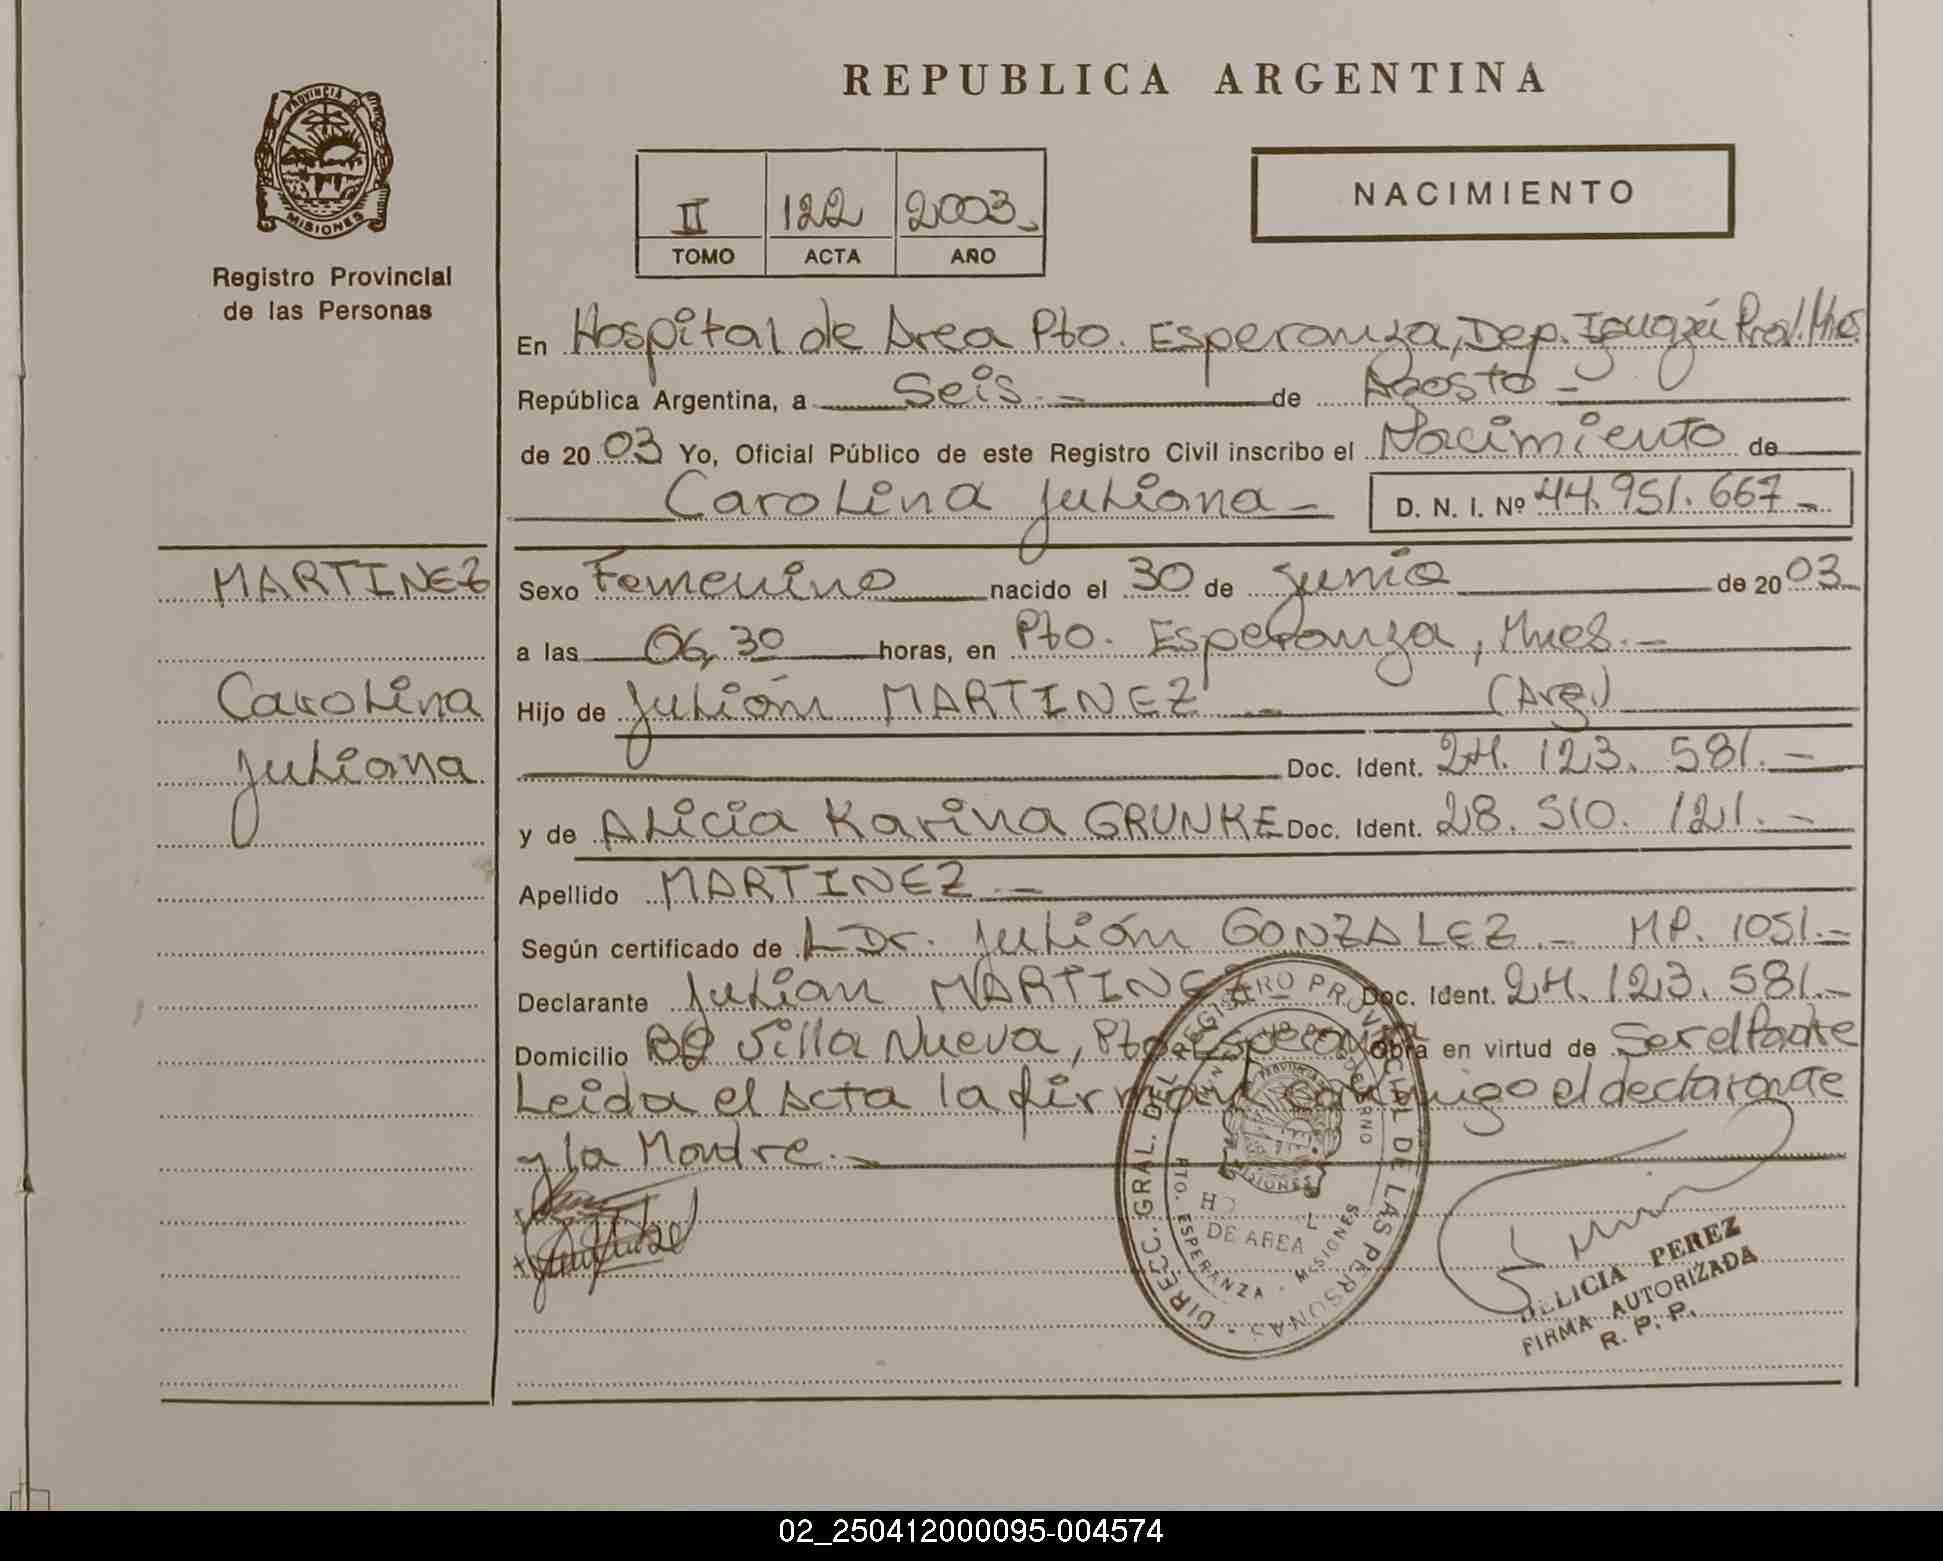 REPUBLICA ARGENTINA
PROVINCIA DE
MISIONES
Registro Provincial
de las Personas
II 122 2003
TOMO ACTA AÑO
NACIMIENTO
En Hospital de Area Pto. Esperanza, Dep. Iguazú Prov. Mnes.
República Argentina, a Seis.- de Agosto-
de 2003 Yo, Oficial Público de este Registro Civil inscribo el Nacimiento de
Carolina Juliana- D. N. I. Nº 44.951.667-
MARTINEZ
Carolina
Juliana
Sexo Femenino nacido el 30 de Junio de 2003
a las 06,30 horas, en Pto. Esperanza, Mnes.-
Hijo de Julián MARTINEZ - (Arg.)
Doc. Ident. 24.123.581.-
y de Alicia Karina GRUNKE Doc. Ident. 28.510.121.-
Apellido MARTINEZ.-
Según certificado de Dr. Julián GONZALEZ.- MP. 1051.-
Declarante Julian MARTINEZ Doc. Ident. 24.123.581.-
Domicilio Bº Villa Nueva, Pto. Esperanza Obra en virtud de Ser el Padre
Leida el Acta la firman conmigo el declarante
y la Madre.-
DIRECC. GRAL. DEL REGISTRO PROVINCIAL DE LAS PERSONAS
DE AREA
PTO. ESPERANZA - MISIONES
DELICIA PEREZ
FIRMA AUTORIZADA
R. P. P.
02_250412000095-004574